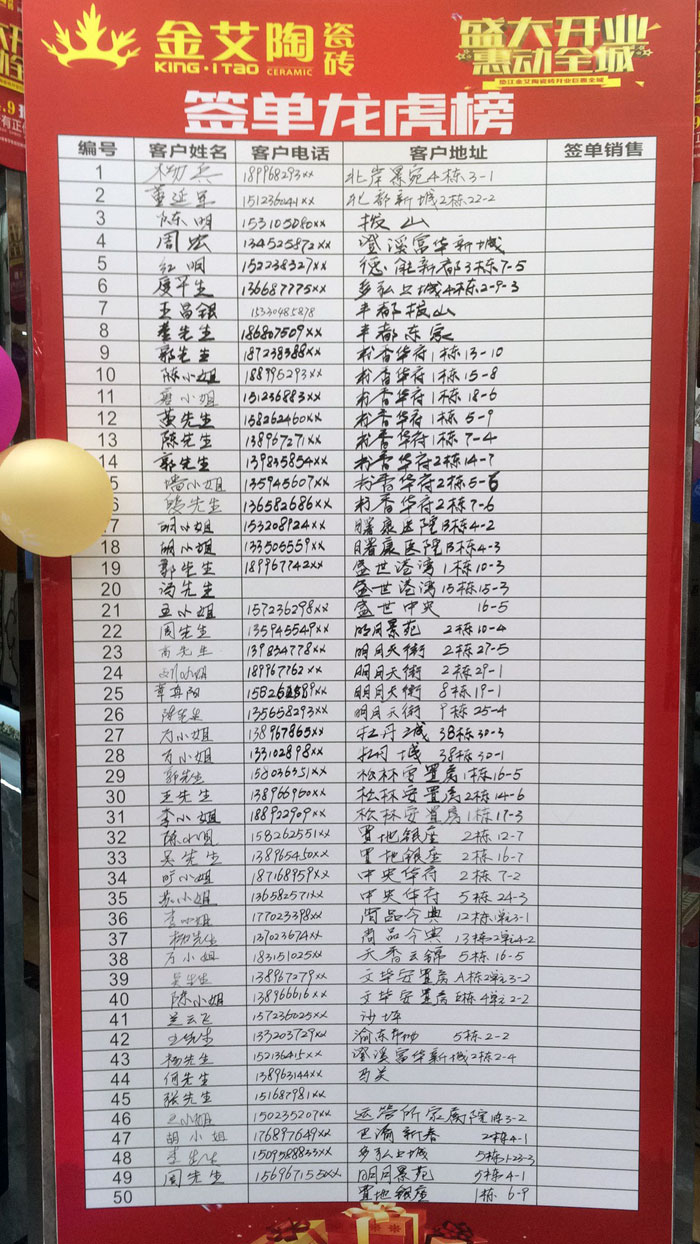 金艾陶 瓷砖
KING·ITAO CERAMIC
盛大开业
惠动全城
签单龙虎榜
编号 客户姓名 客户电话 客户地址 签单销售
1 杨兵 189968293xx 北岸景苑4栋3-1
2 董延军 151236041xx 北部新城2栋22-2
3 陈明 153105080xx 拔山
4 周宏 134525872xx 澄溪富华新城
5 红明 152238327xx 德能新都3栋7-5
6 136687775xx 多弘上城4栋2-9-3
7 王昌银 15330485878 丰都拔山
8 李先生 186807509xx 丰都东家
9 郭先生 187238388xx 粉香华府1栋13-10
10 陈小姐 188996293xx 粉香华府1栋15-8
11 小姐 151236883xx 粉香华府1栋18-6
12 黄先生 158262460xx 粉香华府1栋5-9
13 陈先生 138967271xx 粉香华府1栋7-4
14 郭先生 139835854xx 粉香华府2栋14-7
5 小姐 135945607xx 粉香华府2栋5-6
6 先生 136582686xx 粉香华府2栋7-6
17 胡小姐 153208924xx 曙康医院B栋4-2
18 胡小姐 133505559xx 曙康医院B栋4-3
19 郭先生 189967742xx 盛世港湾1栋10-3
20 冯先生 盛世港湾15栋15-3
21 王小姐 157236298xx 盛世中央 16-5
22 周先生 135945549xx 明月景苑 2栋10-4
23 高先生 139834778xx 明月天街 2栋27-5
24 刘小姐 189967762xx 明月天街 2栋29-1
25 明月天街 8栋19-1
26 135658293xx 明月天街 9栋25-4
27 方小姐 138967865xx 牡丹城 38栋30-3
28 方小姐 133102898xx 牡丹城 38栋30-1
29 郭先生 松林安置房1栋16-5
30 王先生 138966960xx 松林安置房2栋14-6
31 李小姐 188922909xx 松林安置房1栋17-3
32 陈小姐 158262551xx 置地银座 2栋12-7
33 吴先生 138965450xx 置地银座 2栋16-7
34 小姐 187168959xx 中央华府 2栋7-2
35 苏小姐 136582571xx 中央华府 5栋24-3
36 李小姐 177023398xx 尚品今典 12栋1单3-1
37 杨先生 137023674xx 尚品今典 13栋2单元4-2
38 方小姐 183151025xx 天香云锦 5栋16-5
39 吴先生 138967279xx 文华安置房A栋2单3-2
40 陈小姐 138966616xx 文华安置房B栋4单2-2
41 兰云飞 157236025xx 沙坪
42 133203729xx 渝东 5栋2-2
43 杨先生 152136415xx 澄溪富华新城2栋2-4
44 何先生 138963144xx
45 张先生 151687981xx
46 小姐 150235207xx 运管所家属院1栋3-2
47 胡小姐 176897649xx 巴渝新春 2栋4-1
48 李先生 1509588833xx 多弘上城 5栋1-23-3
49 周先生 156967155xx 明月景苑 5栋4-1
50 置地银座 1栋 6-9